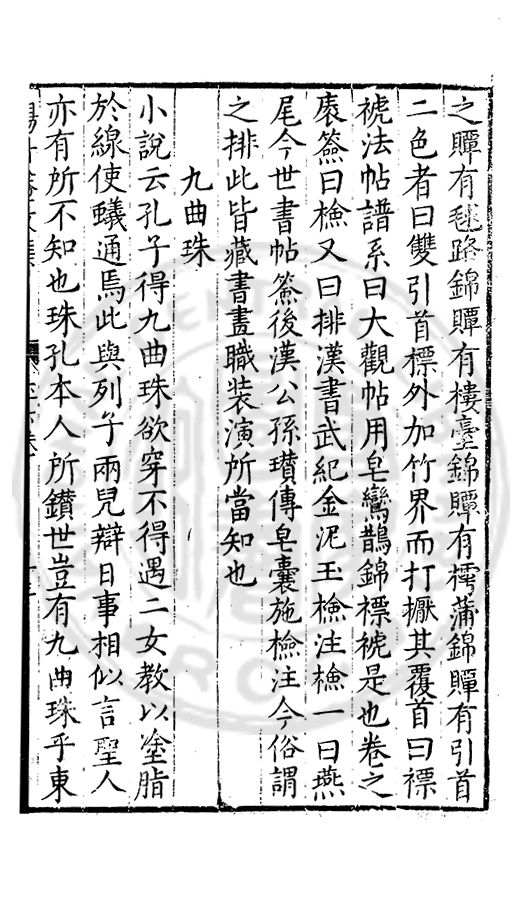 之贉有毬路錦贉有樓臺錦贉有樗蒲錦贉有引首
二色者曰雙引首標外加竹界而打擫其覆首曰褾
褫法帖譜系曰大觀帖用皂鸞鵲錦標褫是也卷之
簽曰檢又曰排漢書武紀金泥玉檢注檢一曰燕
尾今世書帖簽後漢公孫瓚傳皂囊施檢注今俗謂
之排此皆藏書畫職装演所當知也
九曲珠
小說云孔子得九曲珠欲穿不得遇二女教以塗脂
於線使蟻通焉此與列子兩兒辯日事相似言聖人
亦有所不知也珠孔本人所鑚世豈有九曲珠乎東